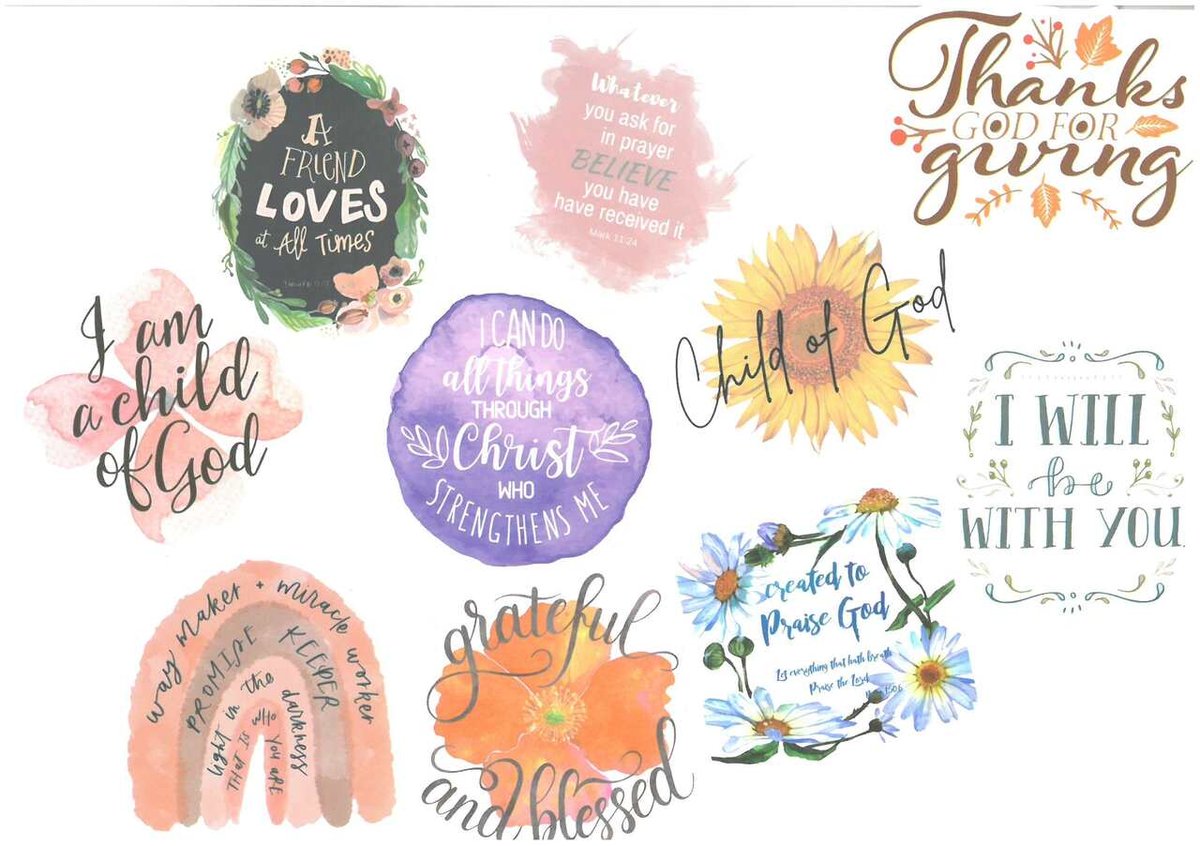 A
FRIEND
LOVES
at All TIMES
Whatever
you ask for
in prayer
BELIEVE
you have
have received it
Mark 11:24
Thanks
GOD FOR
giving
I am
a child
of God
I CAN DO
all things
THROUGH
Christ
WHO
STRENGTHENS ME
Child of God
I WILL
be
WITH YOU
way maker + miracle worker
PROMISE KEEPER
light in the darkness
THAT IS WHO YOU ARE
grateful
and blessed
created to
Praise God
Let everything that hath breath
Praise the Lord
150:6